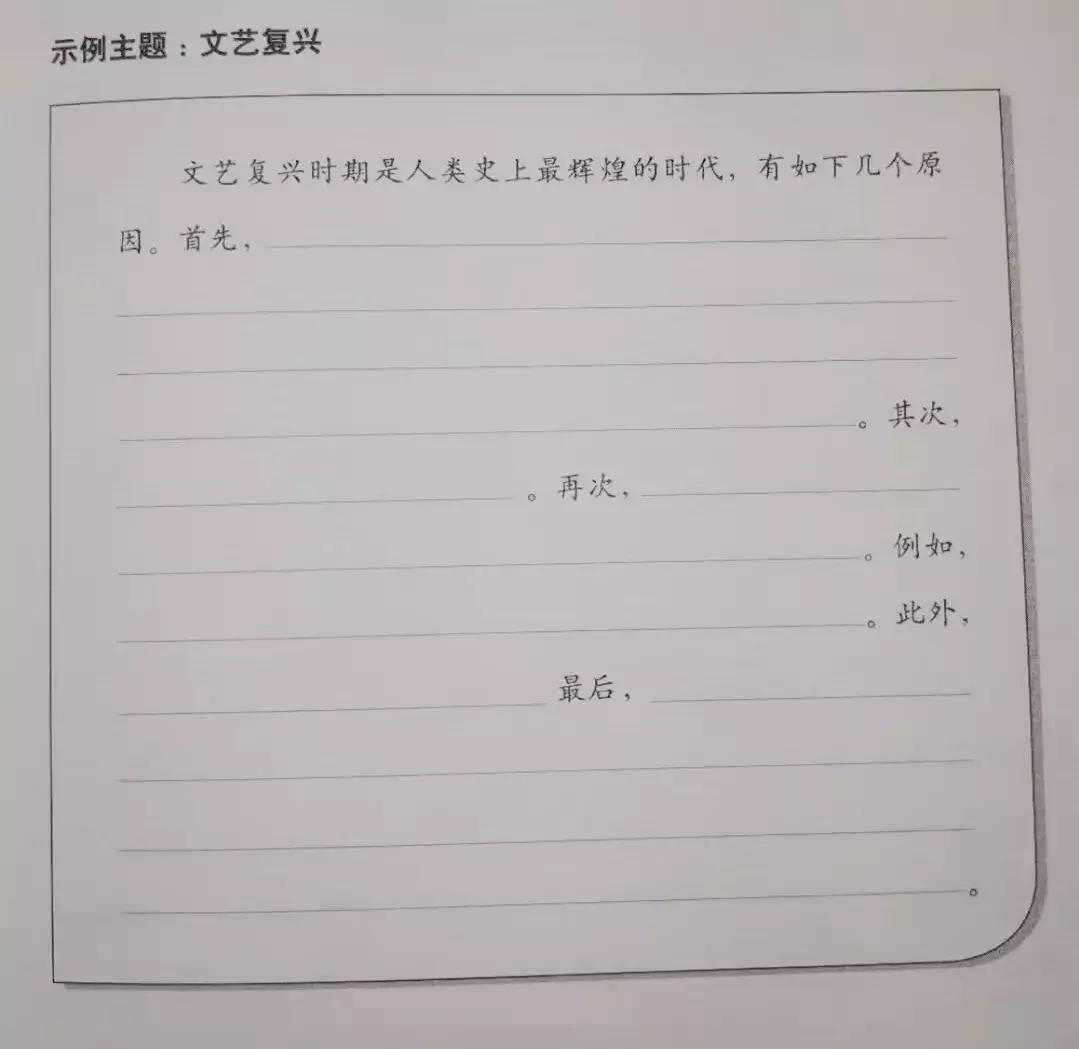 示例主题：文艺复兴
文艺复兴时期是人类史上最辉煌的时代，有如下几个原
因。首先，
。其次，
。再次，
。例如，
。此外，
最后，
。